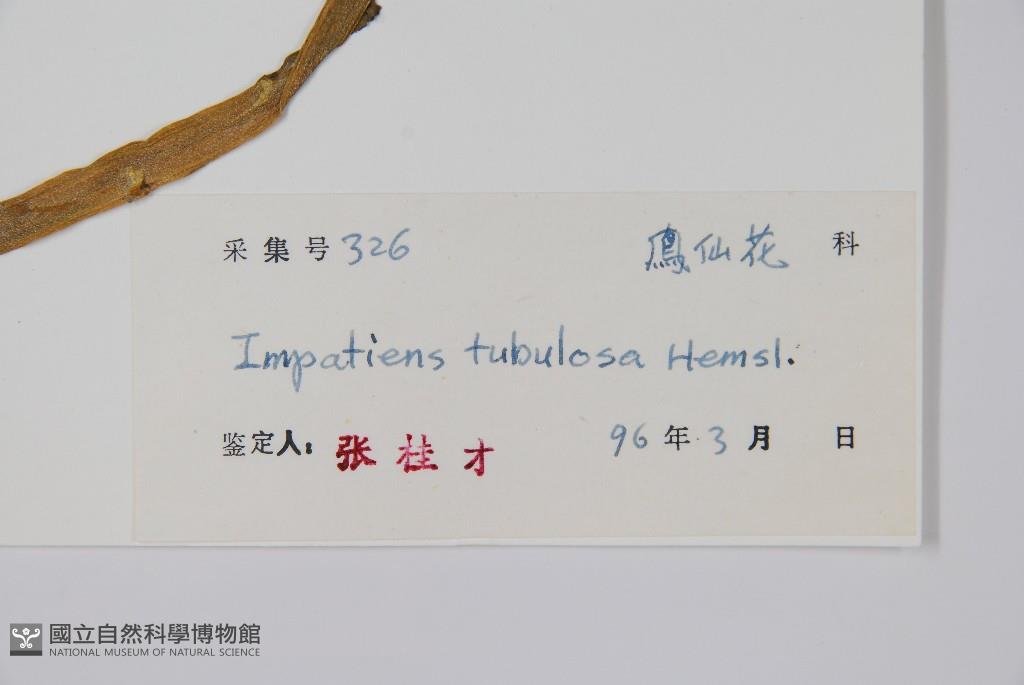 采集号 326 鳳仙花 科
Impatiens tubulosa Hemsl.
鉴定人: 张桂才 96 年 3 月 日
國立自然科學博物館
NATIONAL MUSEUM OF NATURAL SCIENCE